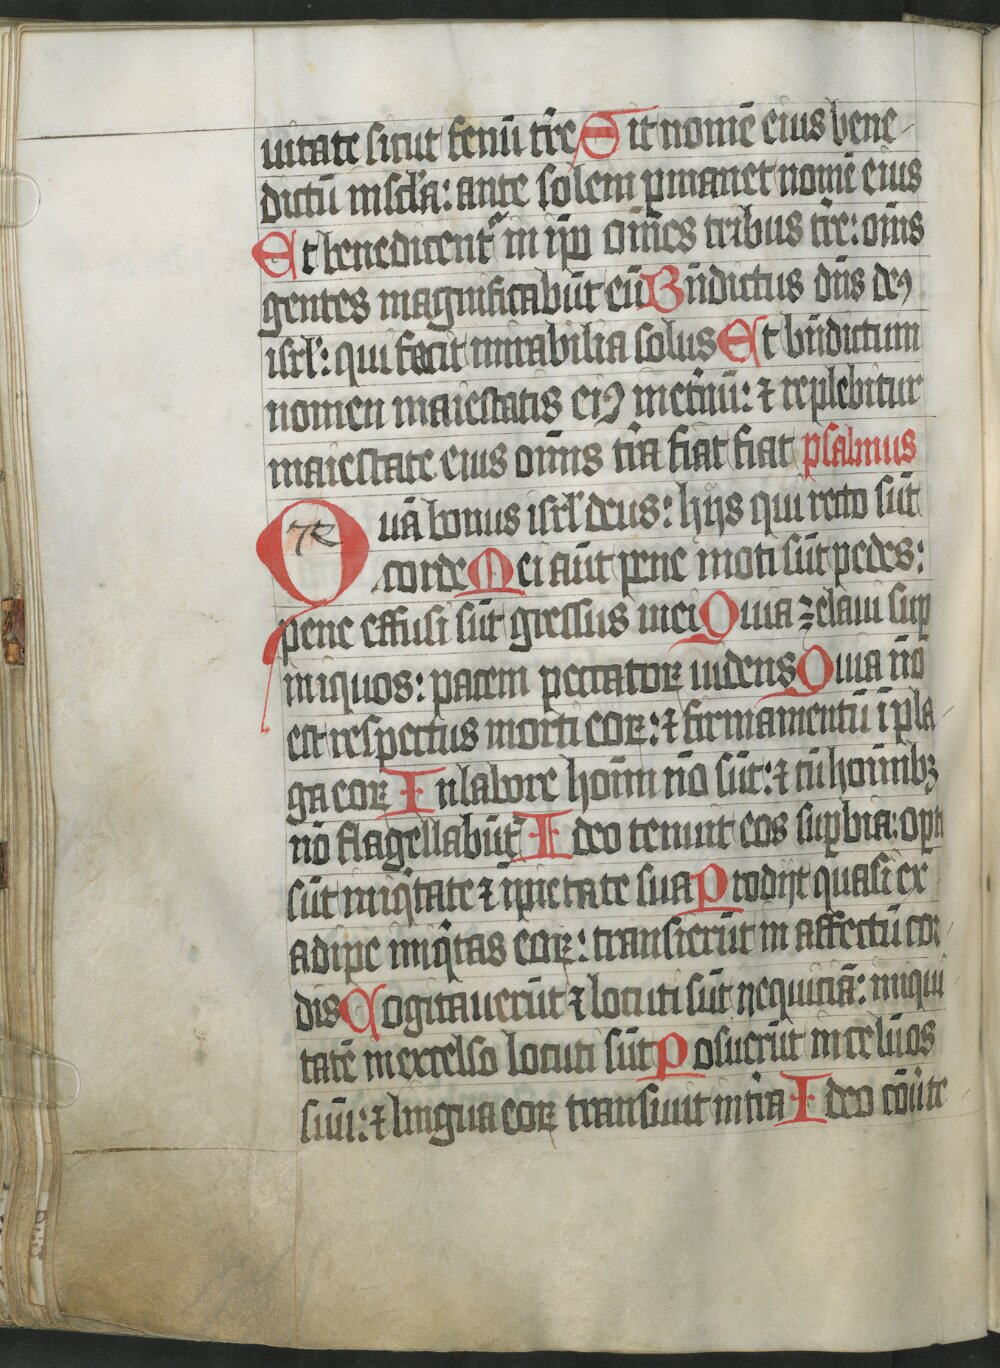 uitate sicut fenū t̄re Sit nomē eius bene
dictū in sc̄la: ante solem ꝑmanet nomē eius
Et benedicentᷣ in ip̄o om̄es tribus t̄re: om̄s
gentes magnificabūt eū Bn̄dictus dn̄s deꝯ
isrl̄: qui facit mirabilia solus Et bn̄dictum
nomen maiestatis eiꝯ inet̄nū: ⁊ replebitur
maiestate eius om̄is t̄ra fiat fiat psalmus
Quā bonus isrl̄ deus: hijs qui recto sūt
72
corde Mei aūt pene moti sūt pedes:
pene effusi sūt gressus mei Quia zelaui suꝑ
iniquos: pacem peccatoꝝ uidens Quia nō
est respectus morti eoꝝ: ⁊ firmamentū ī pla
ga eoꝝ In labore hoīm nō sūt: ⁊ cū hoīnibꝫ
nō flagellabūtᷣ Ideo tenuit eos suꝑbia: oꝑti
sūt iniq̄tate ⁊ īpietate sua Prodijt quasi ex
adipe iniq̄tas eoꝝ: transierūt in affectū cor
dis Cogitauerūt ⁊ locuti sūt nequiciā: iniqui
tatē in excelso locuti sūt Posuerūt in celū os
suū: ⁊ lingua eoꝝ transiuit in t̄ra Ideo cōūte